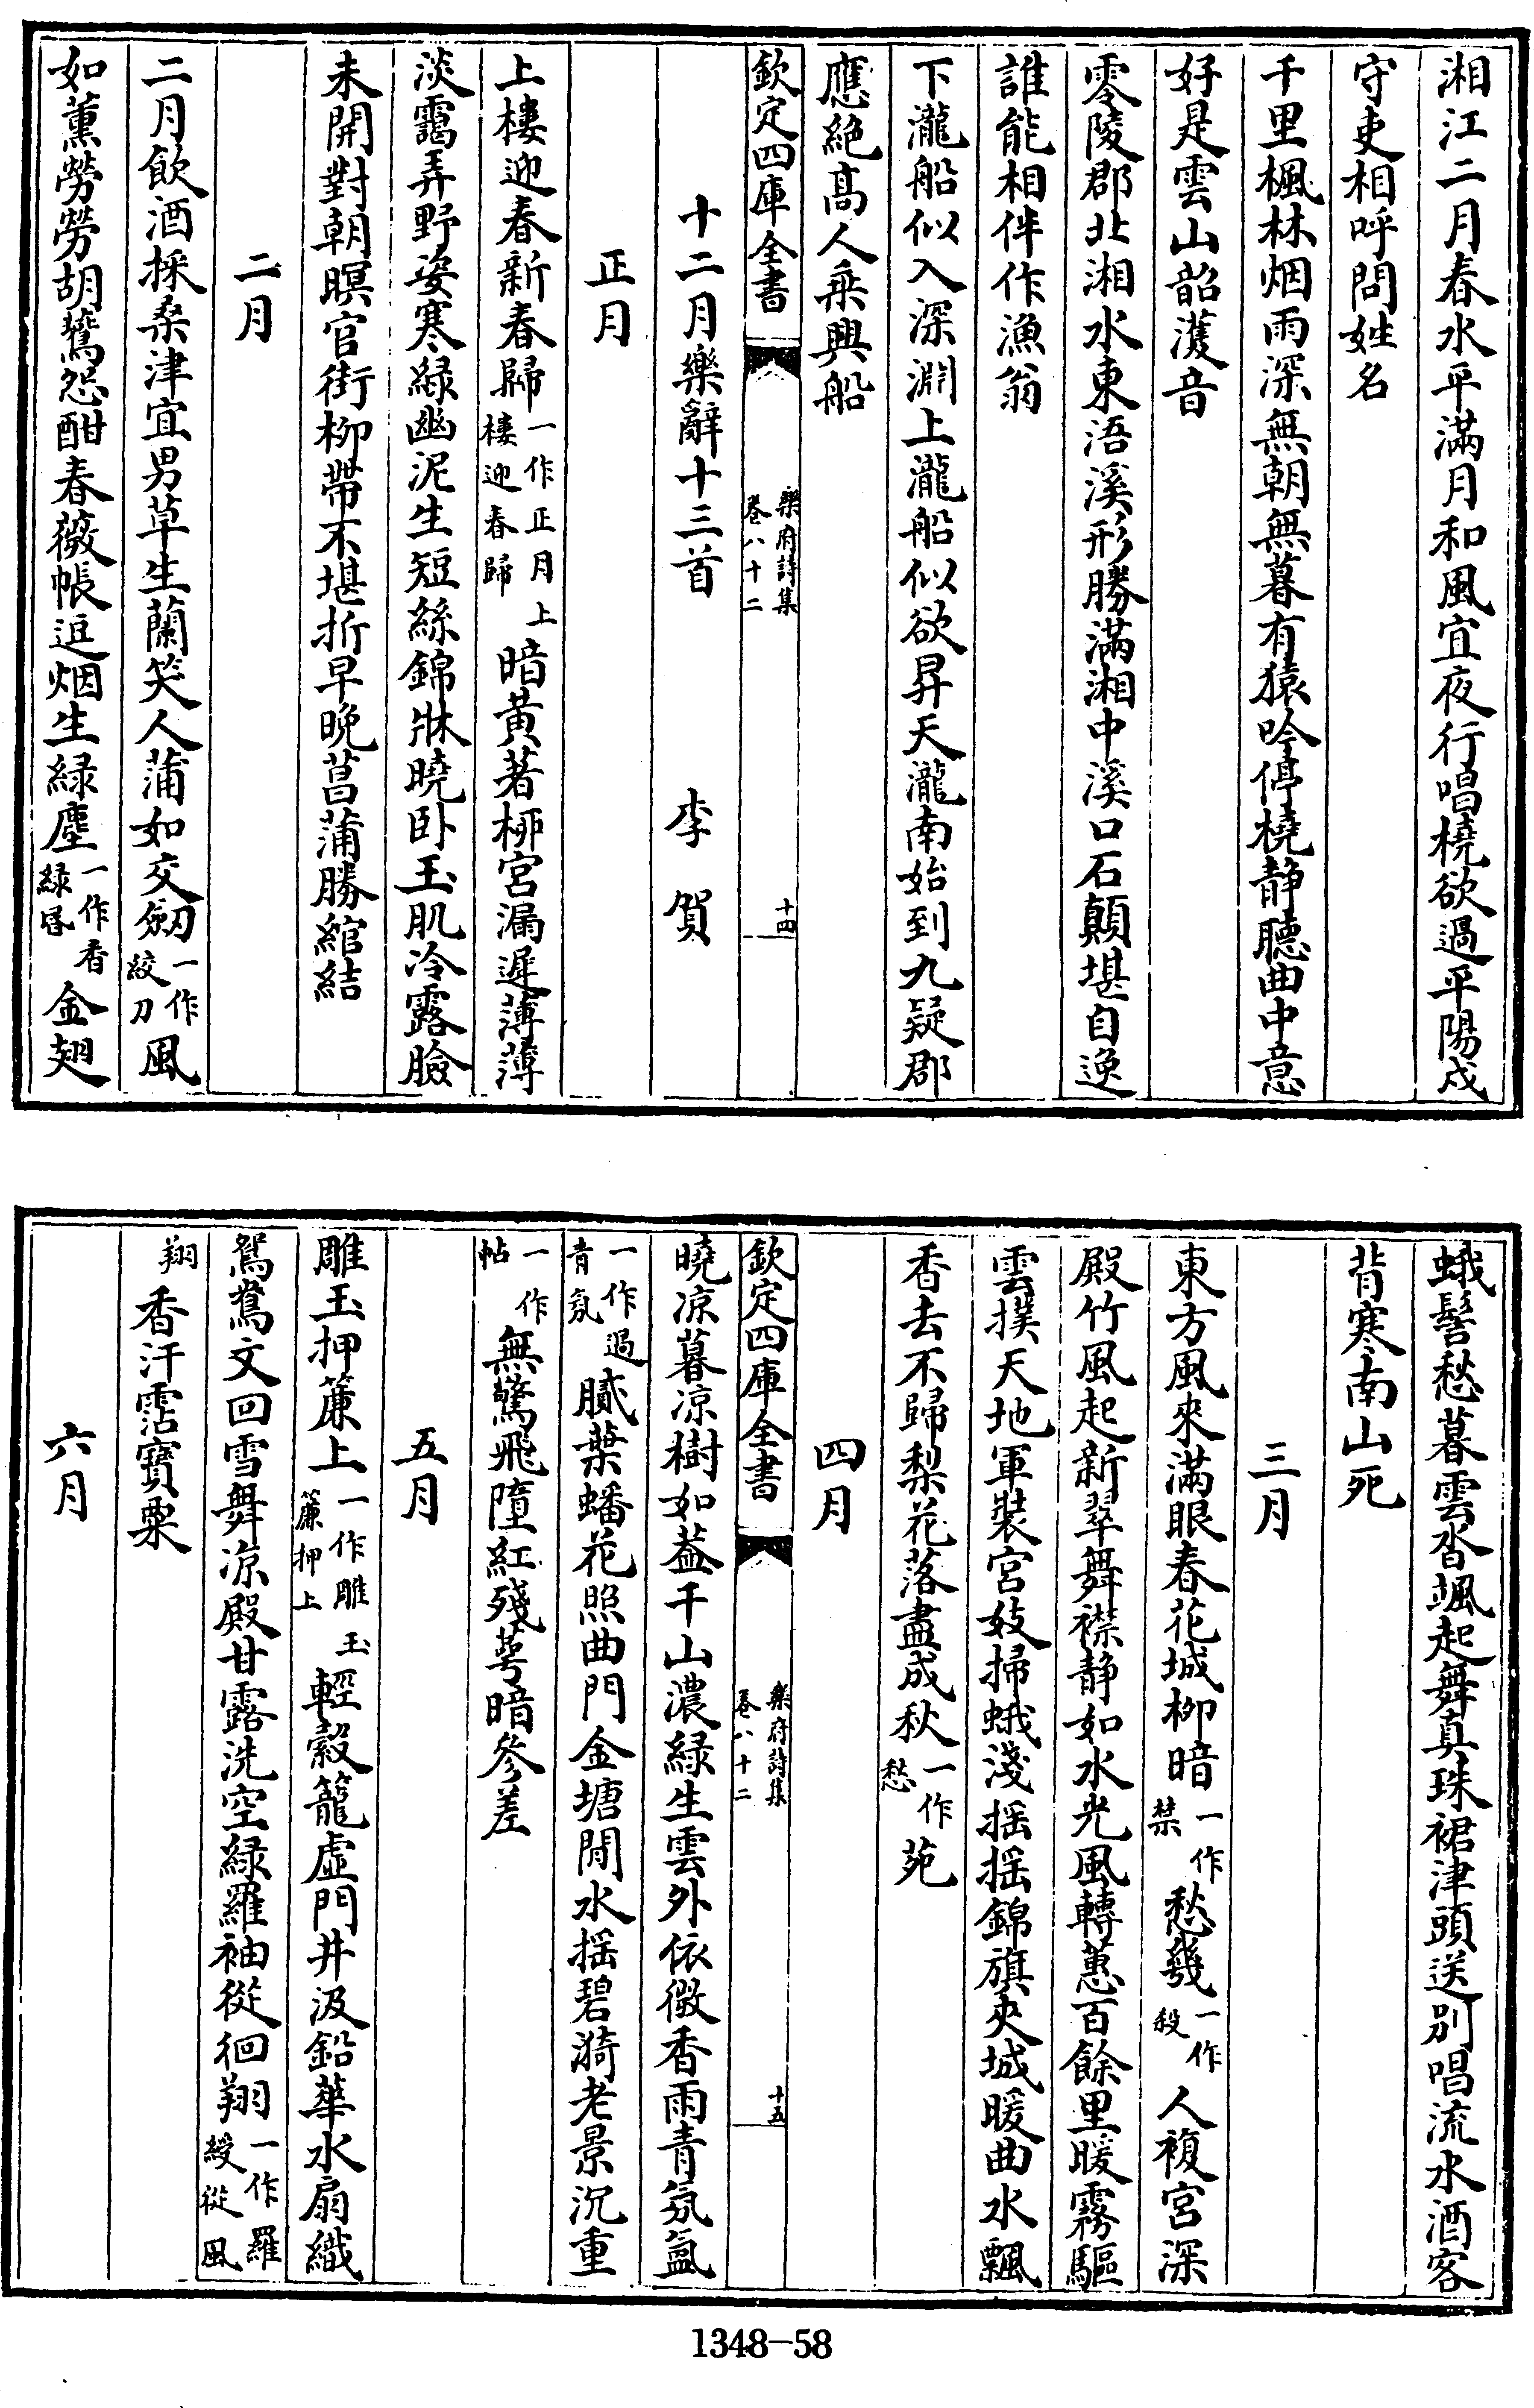 湘江二月春水平滿月和風宜夜行唱橈欲過平陽戍
守吏相呼問姓名
千里楓林烟雨深無朝無暮有猿吟停橈静聽曲中意
好是雲山韶濩音
零陵郡北湘水東浯溪形勝滿湘中溪口石顛堪自逸
誰能相伴作漁翁
下瀧船似入深淵上瀧船似欲昇天瀧南始到九疑郡
應絶髙人乗興船
欽定四庫全書
樂府詩集
卷八十二
十四
十二月樂辭十三首 李賀
正月
上樓迎春新春歸一作正月上樓迎春歸暗黄著栁宮漏遲薄薄
淡靄弄野姿寒緑幽泥生短絲錦牀曉卧玉肌冷露臉
未開對朝暝官街柳帶不堪折早晚菖蒲勝綰結
二月
二月飲酒採桑津宜男草生蘭笑人蒲如交劒一作絞刀風
如薰勞勞胡鷰怨酣春薇帳逗烟生緑塵一作香緑昏金翅
蛾髻愁暮雲沓颯起舞真珠裙津頭送别唱流水酒客
背寒南山死
三月
東方風來滿眼春花城栁暗一作禁愁幾一作殺人複宮深
殿竹風起新翠舞襟静如水光風轉蕙百餘里暖霧驅
雲撲天地軍裝宮妓掃蛾淺摇摇錦旗夾城暖曲水飄
香去不歸梨花落盡成秋一作愁苑
四月
欽定四庫全書
樂府詩集
卷八十二
十五
曉凉暮凉樹如葢千山濃緑生雲外依微香雨青氛氲
一作過青氛膩葉蟠花照曲門金塘閒水摇碧漪老景沉重
一作帖無驚飛墮紅殘萼暗參差
五月
雕玉押簾上一作雕玉簾押上輕縠籠虚門井汲鉛華水扇織
鴛鴦文回雪舞凉殿甘露洗空緑羅袖從徊翔一作羅綬從風
翔香汗霑寶粟
六月
1348-58